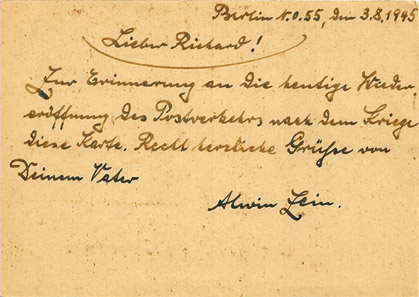 Berlin N.O.55, den 3.8.1945
Lieber Richard!
Zur Erinnerung an die heutige Wieder,
eröffnung des Postverkehrs nach dem Kriege
diese Karte. Recht herzliche Grüße von
Deinem Vater
Alwin